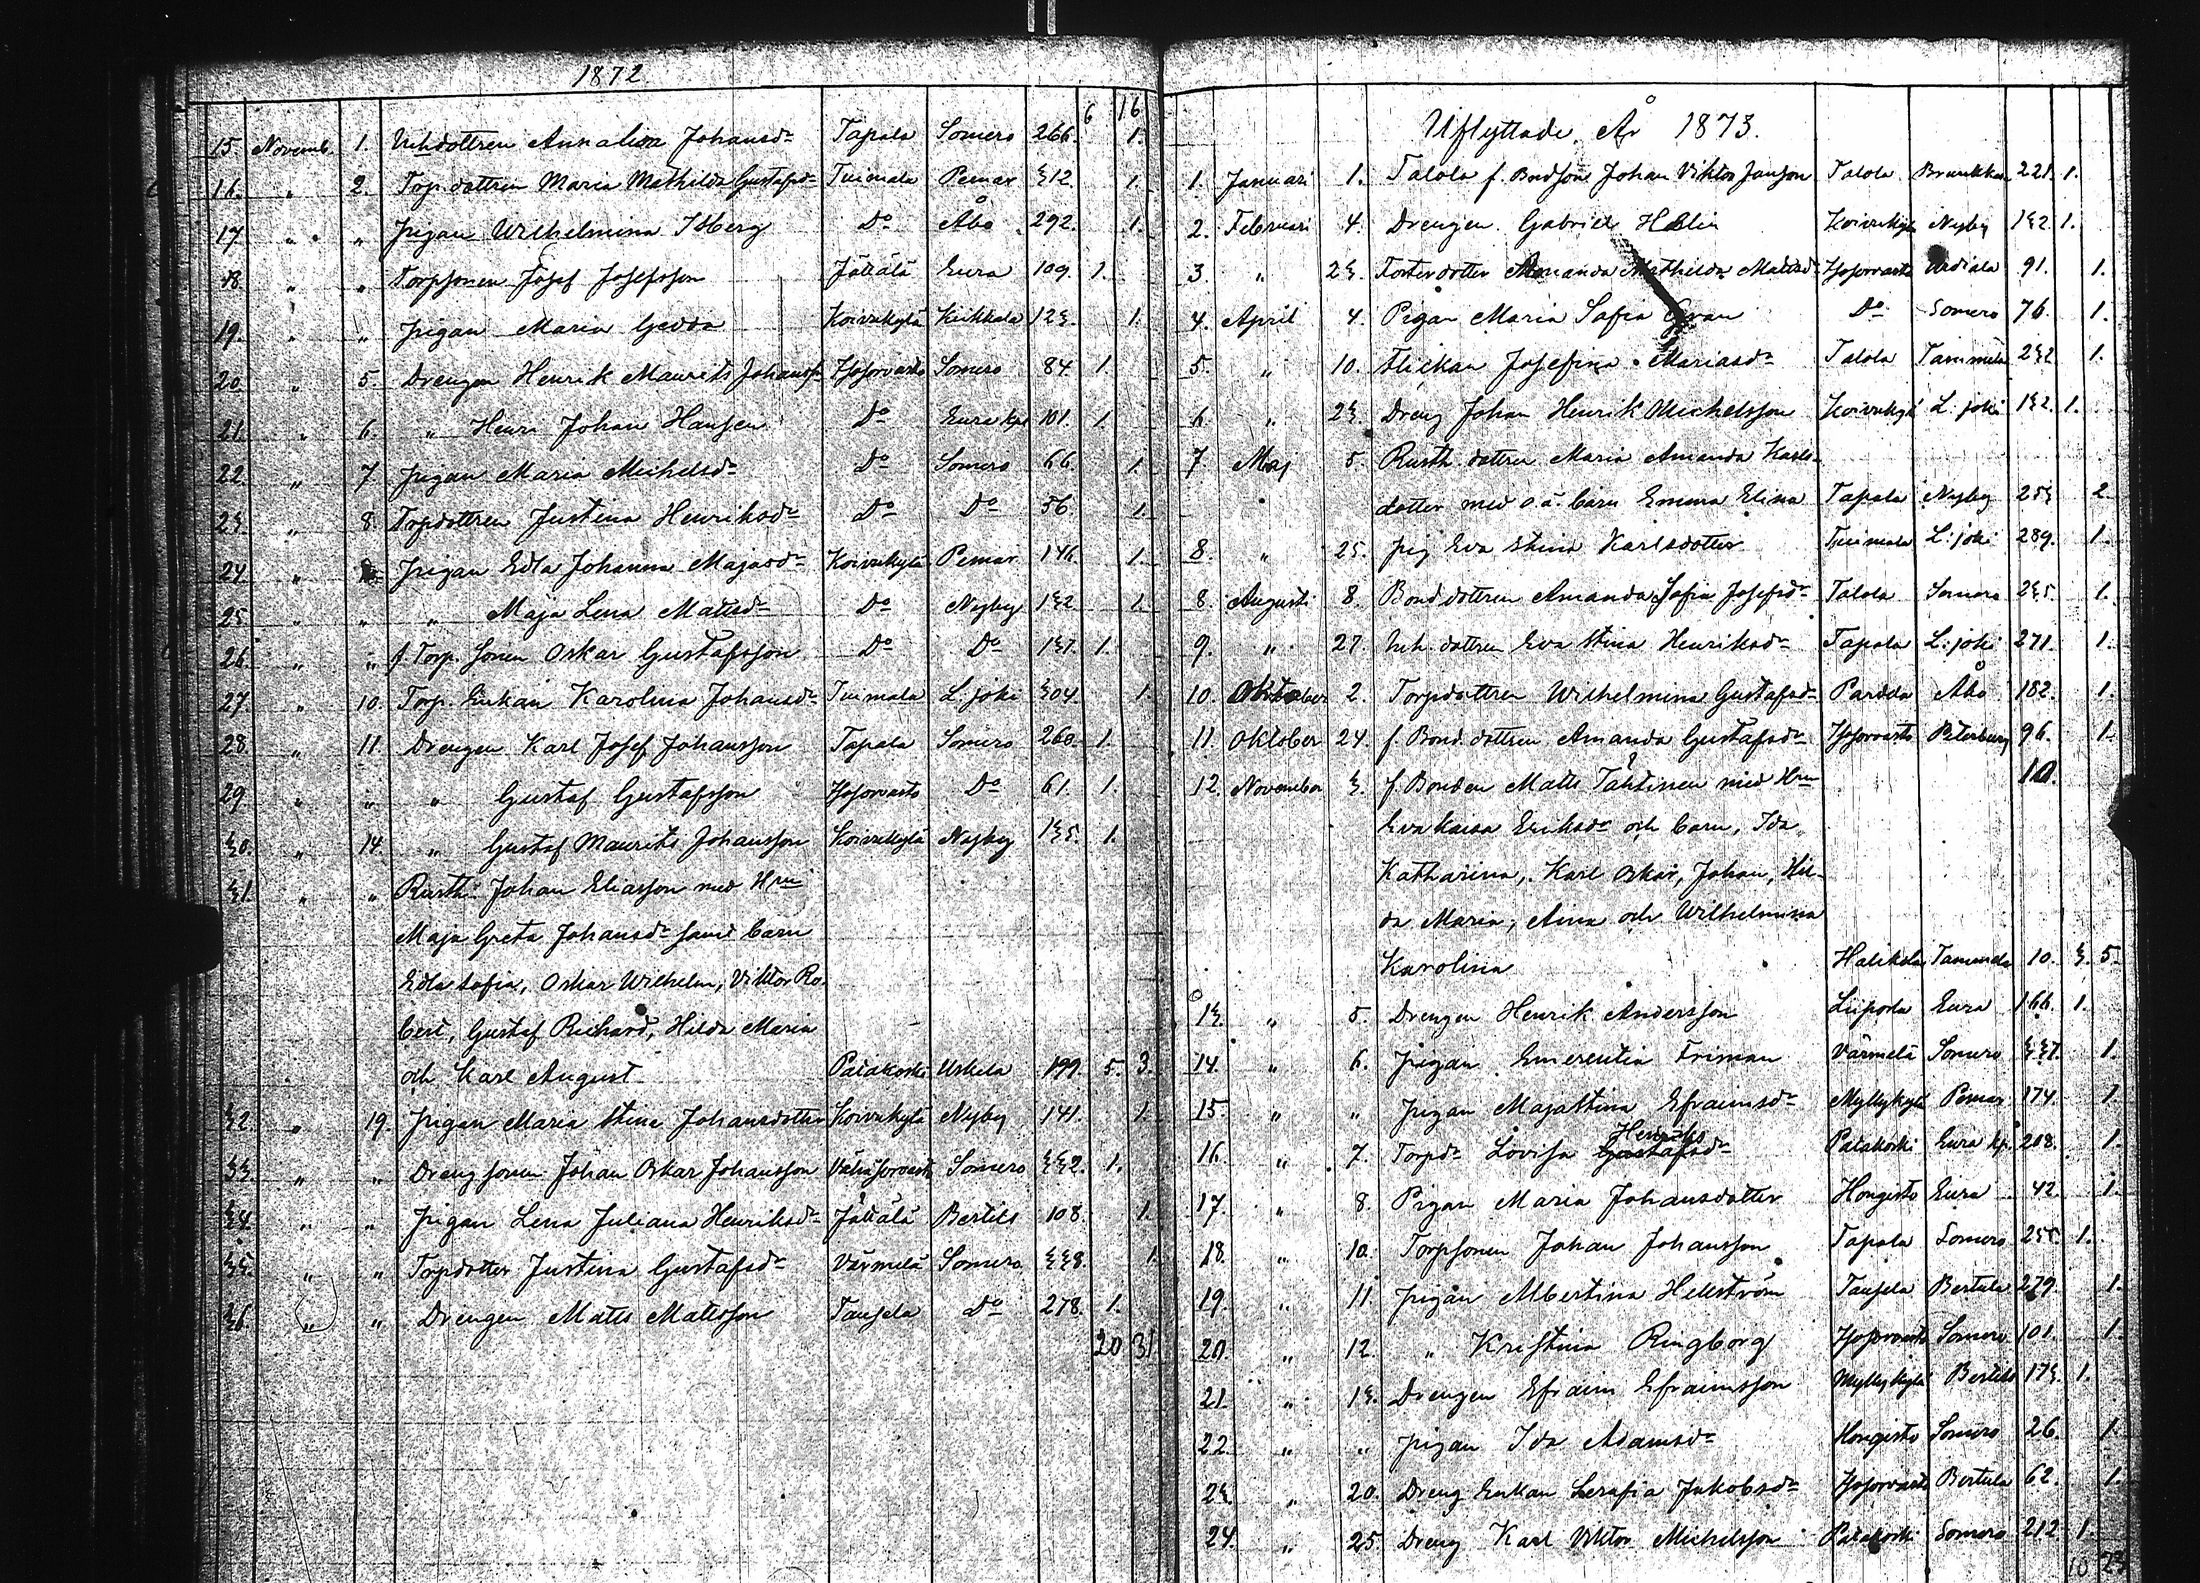 1872
6 16
15. Novemb. 1. Inhdottren Annalisa Johansdr Tapala Somero 266. 1.
16. " 2. Torpdottren Maria Mathilda Gustafsdr Tuimala Pemar 312 1.
17 " " Pigan Wilhelmina Idberg Do Åbo 292. 1.
18 " " Torpsonen Josef Josefsson Jättälä Eura 109. 1.
19. " " Pigan Maria Gedda Koivukylä Kiikkala 123. 1.
20. " 5. Drengen Henrik Maurits Johansson Ihsorvasto Somero 84. 1.
21. " 6. " Henri Johan Hansen Do Eura kpl 101. 1
22. " 7 Pigan Maria Michelsdr Do Somero 66. 1.
23. " 8. Torpdottren Justina Henriksdr Do Do 56. 1.
24 " Pigan Edla Johanna Majasdr Koivukylä Pemar 146. 1.
25 " " " Maja Lena Mattsdr Do Nyby 132 1.
26. " " f. Torp. sonen Oskar Gustafsson Do Do 137. 1.
27. " 10. Torp. Enkan Karolina Johansdr Tuimala L. joki 304. 1.
28. " 11 Drengen Karl Josef Johansson Tapala Somero 260. 1.
29 " " " Gustaf Gustafsson Do 61. 1.
30. " 14. " Gustaf Maurits Johansson Koivukylä Nyby 135. 1.
31. " " Rusth. Johan Eliasson med Hru
Maja Greta Johansdr samt barn
Edla Sofia, Oskar Wilhelm, Viktor Ro-
bert, Gustaf Richard, Hilda Maria
och Karl August Patakoski Uskela 199. 5. 3.
32. " 19. Pigan Maria Stina Johansdotter Koivukylä Nyby 141. 1.
33. " " Drengsonen Johan Oskar Johansson Somero 332. 1.
34. " " Pigan Lena Juliana Henriksdr Jättälä Bertils 108. 1.
35. " " Torpdotter Justina Gustafsdr Värmelä Somero 338. 1.
36. " " Drengen Matts Mattsson Taujela Do 278. 1.
20 31
Utflyttade År 1873.
1. Januari 1. Talola f. Bondson Johan Viktor Janson Talola 221. 1.
2. Februari 4. Drengen Gabriel Helin Koivukylä Nyby 132. 1.
3. " 23. Fosterdotter Amanda Mathilda Mattsdr Urdiala 91. 1.
4. April 4. Pigan Maria Sofia Gran Do Somero 76. 1.
5. " 10. Flickan Josefina Mariasdr Talola Tammela 232 1.
6. " 23. Dreng Johan Henrik Michelsson Koivukylä L. joki 132. 1.
7. Maj 5. Rusth. dottren Maria Amanda Karls-
dotter med o. ä. barn Emma Elina Tapala Nyby 253 2.
8. " 25. Pig Eva Stina Karlsdotter Tuimala L. joki 289. 1.
8. Augusti 8. Bonddottren Amanda Sofia Josefsdr Talola Somero 235. 1.
9. " 27. Inh. dottren Eva Stina Henriksdr Tapala L. joki 271. 1.
10. Oktober 2. Torpdottren Wilhelmina Gustafsdr Pardda Åbo 182. 1.
11. Oktober 24. f. Bond. dottren Amanda Gustafsdr Peterburg 96. 1.
12. November 3. f. Bonden Matts Tähtinen med Hru 10.
Eva Kaisa Eriksdr och barn, Ida
Katharina, Karl Oskar, Johan, Hil-
da Maria, Aina och Wilhelmina
Karolina Halikola Tammela 10. 3. 5.
13. " 5. Drengen Henrik Andersson Liipola Eura 166. 1.
14. " 6. Pigan Emerentia Friman Värmelä Somero 337. 1.
15. " " Pigan Maja Stina Efraimsdr Myllykylä Pemar 174. 1.
Henriks
16. " 7. Torpdr Lovisa Gustafsdr Patakoski Eura kp. 208. 1.
17. " 8. Pigan Maria Johansdotter Hongisto Eura 42. 1.
18. " 10. Torpsonen Johan Johansson Tapala Somero 255. 1.
19. " 11. Pigan Albertina Hellström Taujela Bertula 279. 1.
20. " 12. " Kristina Ringborg Somero 101. 1.
21. " 13. Drengen Efraim Efraimsson Myllykylä Bertils 173. 1.
22. " " Pigan Ida Adamsdr Hongisto Somero 26. 1.
23. " 20. Dreng Enkan Serafia Jakobsdr Bertula 62. 1.
24. " 25. Dreng Karl Viktor Michelsson Patakoski Somero 212 1.
10 23